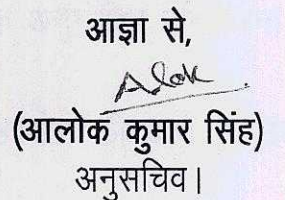 आज्ञा से,
Alok
(आलोक कुमार सिंह)
अनुसचिव।